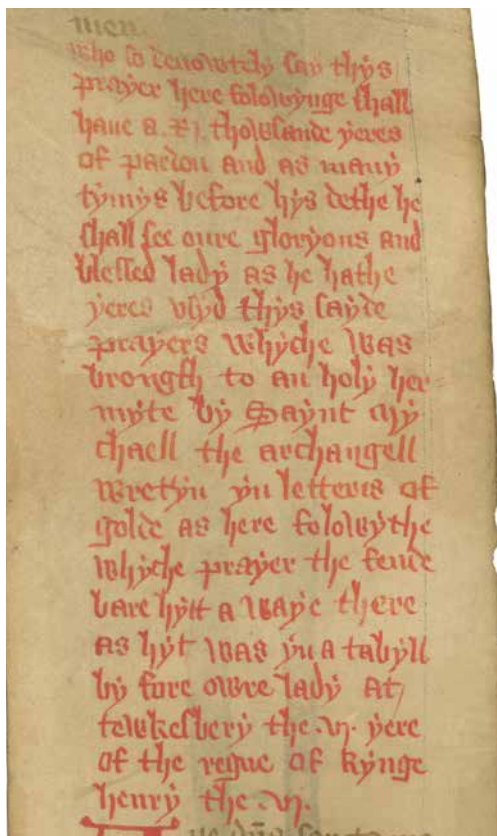 men.
who so deuowtely say thys
prayer here folowynge shall
haue a. xj. thowsande yeres
of pardon and as many
tymys before hys dethe he
shall see oure gloryous and
blessed lady as he hathe
yeres vsyd thys sayde
prayers whyche was
brougth to an holy her=
myte by Saynt my
chaell the archangell
wretyn yn letteris of
golde as here folowythe
whyche prayer the fende
bare hytt a waye there
as hyt was yn a tabyll
by fore owre lady at
tewkesbery the .vj. yere
of the regne of kynge
henry the .vj.